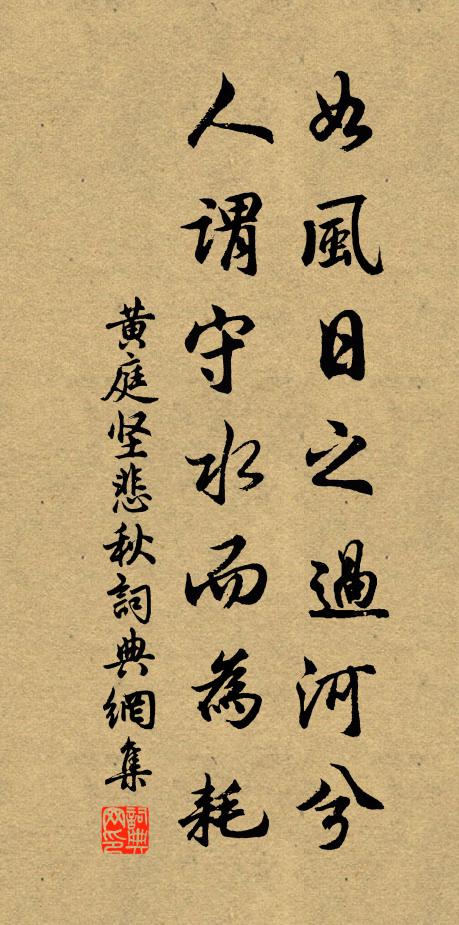 如風日之過河兮
人謂守水而為耗
黃庭坚悲秋詞典網集
詞典網印